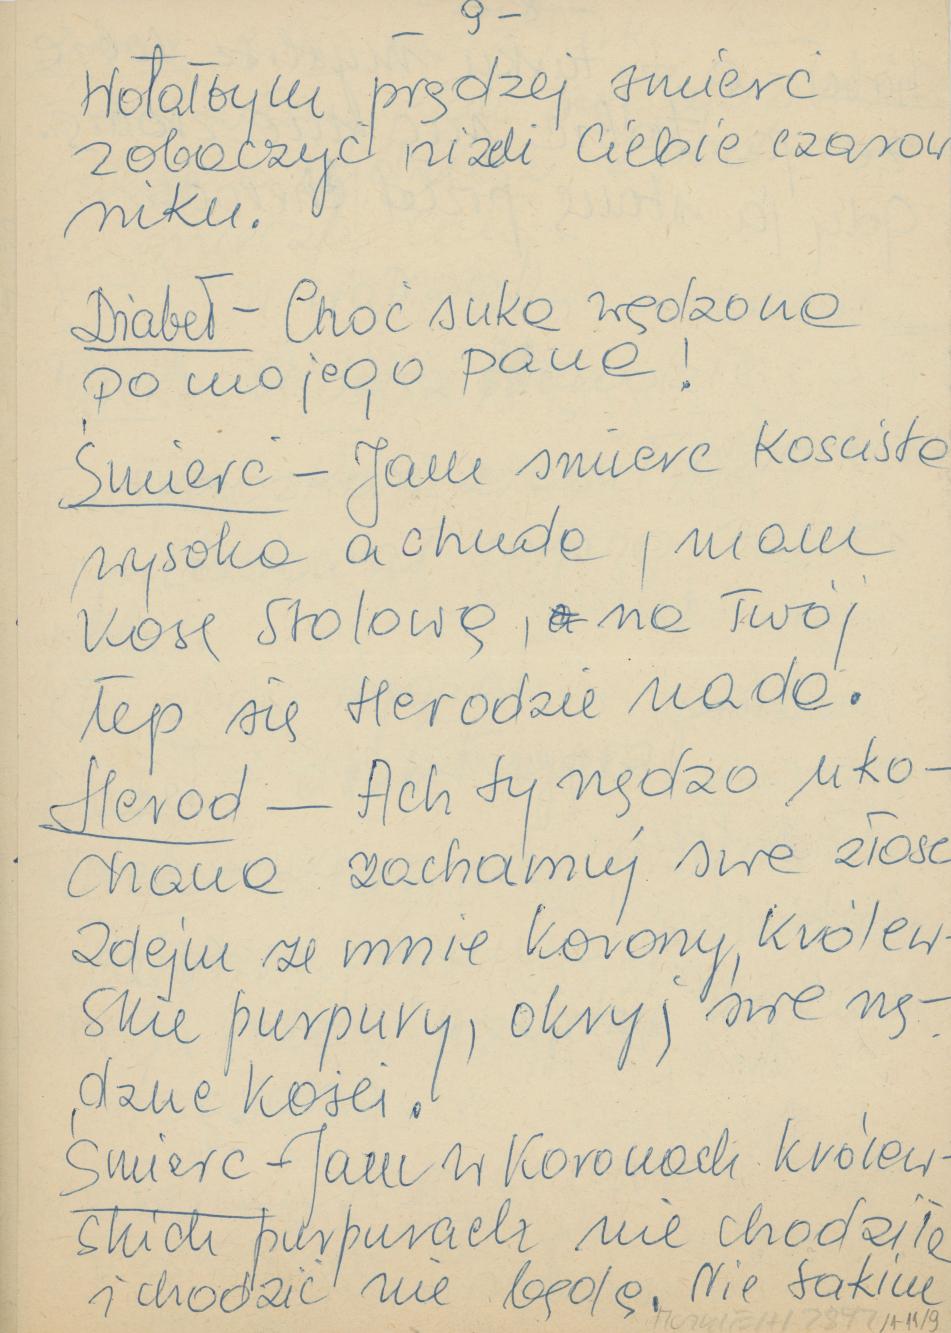 - 9 -
Wolałbym prędzej smierć
zobaczyć niżeli Ciebie czarow
niku.
Diabeł - Choć suka wędzona
po mojego pana!
Śmierć - Jam smierc Koscista
wysoka a chuda, mam
Kosę Stolową, na Twój
łep się Herodzie nada.
Herod - Ach ty nędzo uko-
chana zachamuj swe złosc
Zdejm ze mnie korony, królew-
skie purpury, okryj swe nę-
dzne kości.
Śmierc - Jam w Koronach królew-
skich purpurach nie chodziła
i chodzić nie będę. Nie takim